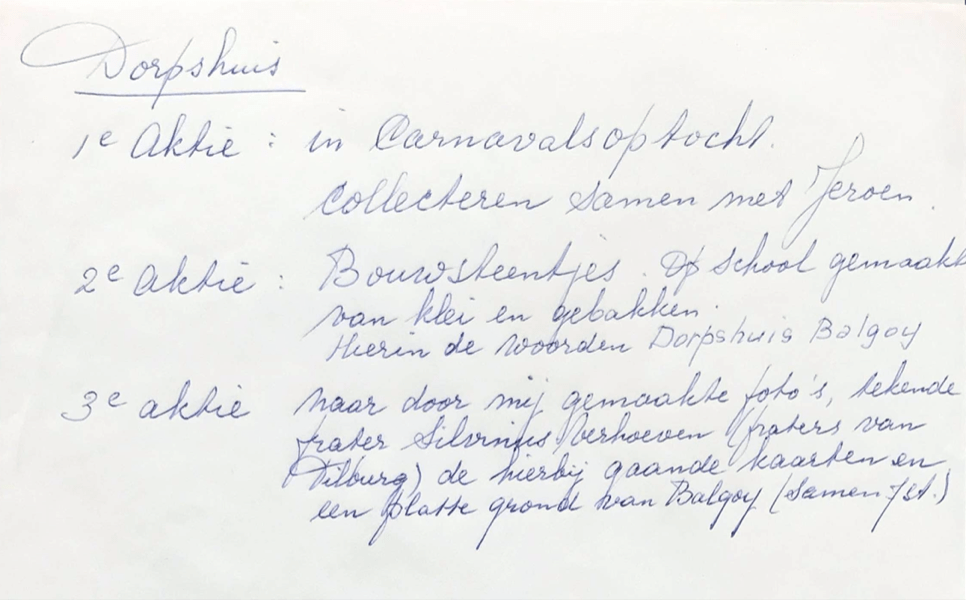 Dorpshuis
1e Aktie : in Carnavalsoptocht.
Collecteren samen met Jeroen.
2e Aktie : Bouwsteentjes. Op school gemaakt
van klei en gebakken.
Hierin de woorden Dorpshuis Balgoy
3e aktie naar door mij gemaakte foto's, tekende
frater Silvinius Verhoeven (fraters van
Tilburg) de hierbij gaande kaarten en
een platte grond van Balgoy (samen 7 st.)